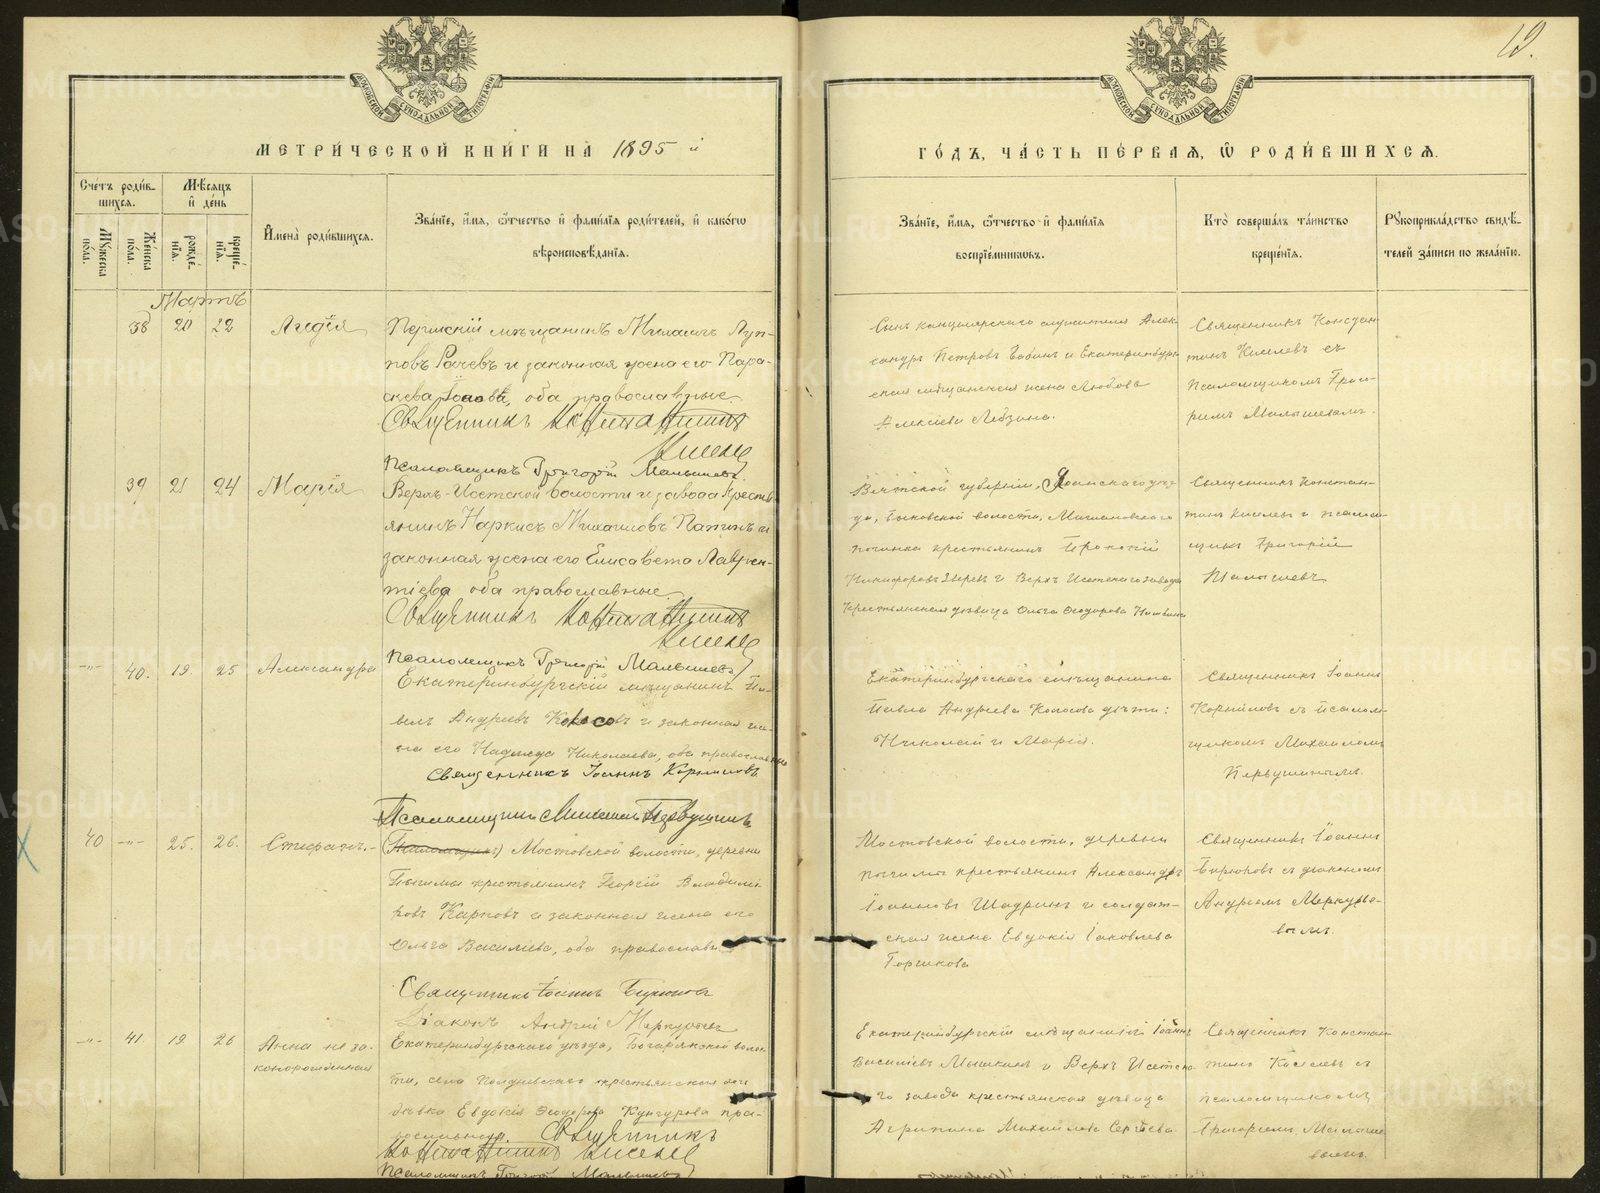 19.
МОСКОВСКОЙ СѴНОДАЛЬНОЙ ТИПОГРАФІИ
МОСКОВСКОЙ СѴНОДАЛЬНОЙ ТИПОГРАФІИ
МЕТРИ́ЧЕСКОЙ КНИ́ГИ НА̀ 1895 й
ГО́ДЪ, ЧА́СТЬ ПЕ́РВАЯ, Ѽ РОДИ́ВШИХСЯ.
Сче́тъ роди́в-
шихся.
Мѣ́сяцъ
и҆ де́нь
Му́жеска по́ла.
Же́нска по́ла.
рожде́-нїя.
креще́-нїя.
И҆мена̀ роди́вшихся.
Зва́нїе, и҆́мя, ѻ҆́тчество и҆ фами́лїя роди́телей, и҆ како́гѡ
вѣроисповѣ́данїя.
Зва́нїе, и҆́мя, ѻ҆́тчество и҆ фами́лїя
воспрїе́мникѡвъ.
Кто̀ соверша́лъ та́инство
креще́нїя.
Рꙋкоприкла́дство свидѣ́-
телей за́писи по жела́нїю.
Мартъ
38 20 22 Лидія
Пермскій мѣщанинъ Михаилъ Луп-
повъ Рачевъ и законная жена его Пара-
скева, оба православные.
Священникъ Константинъ
Киселев
Псаломщикъ Григорій Малышевъ
Сынъ канцелярскаго служителя Алек-
сандръ Петровъ Бабинъ и Екатеринбург-
ская мѣщанская жена Любовь
Алексіева
Священникъ Констан-
тинъ Киселевъ съ
псаломщикомъ Григо-
ріемъ Малышевымъ.
39 21 24 Марія
Верхъ-Исетской волости и завода крестья-
янинъ Наркисъ Михаиловъ Папинъ и
законная жена его Елисавета Лаврен-
тіева оба православные
Священникъ Константинъ
Киселев
Псаломщикъ Григорій Малышевъ
Вятской губерніи, Яранскаго уѣз-
да, волости,
починка крестьянинъ Прокопій
Никифоровъ и Верхъ Исетскаго завода
крестьянская дѣвица Ольга Ѳеодорова
Священникъ Констан-
тинъ Киселевъ и псалом-
щикъ Григорій
Малышевъ
-"- 40. 19. 25 Александра
Екатеринбургскій мѣщанинъ Па-
велъ Андреевъ Колосовъ и законная же-
на его Надежда Николаева, оба православные
Священникъ Іоаннъ Корниловъ
Псаломщикъ Михаилъ Первушинъ
Екатеринбургскаго мѣщанина
Павла Андреева Колосова дѣти:
Николай и Марія.
Священникъ Іоаннъ
Корниловъ съ псалом-
щикомъ Михаиломъ
Первушинымъ.
40 -"- 25. 26. Стефанъ.
(Псаломщикъ) Мостовской волости, деревни
крестьянинъ Георгій Владимі-
ровъ Карповъ и законная жена его
Ольга Василіева, оба православные
Священникъ Іоаннъ Бирюковъ
Діаконъ Андрей Меркурьевъ
Мостовской волости, деревни
крестьянинъ Александръ
Іоанновъ Шадринъ и солдат-
ская жена Евдокія Іаковлева
Горчикова
Священникъ Іоаннъ
Бирюковъ съ діакономъ
Андреемъ Меркурье-
вымъ.
-"- 41. 19 26 Анна неза-
конорожденная
Екатеринбургскаго уѣзда, Багарякской волос-
ти, села Полдневскаго крестьянская
дѣвка Евдокія Ѳеодорова Кунгурова пра-
вославная. Священникъ
Константинъ Киселев
Псаломщикъ Григорій Малышевъ
Екатеринбургскій мѣщанинъ Іоаннъ
Василіевъ Мышкинъ и Верхъ Исетска-
го завода крестьянская дѣвица
Агрипина Михайлова Сергѣева
Священникъ Констан-
тинъ Киселевъ съ
псаломщикомъ
Григоріемъ Малыше-
вымъ.
METRIKI.GASO-URAL.RU